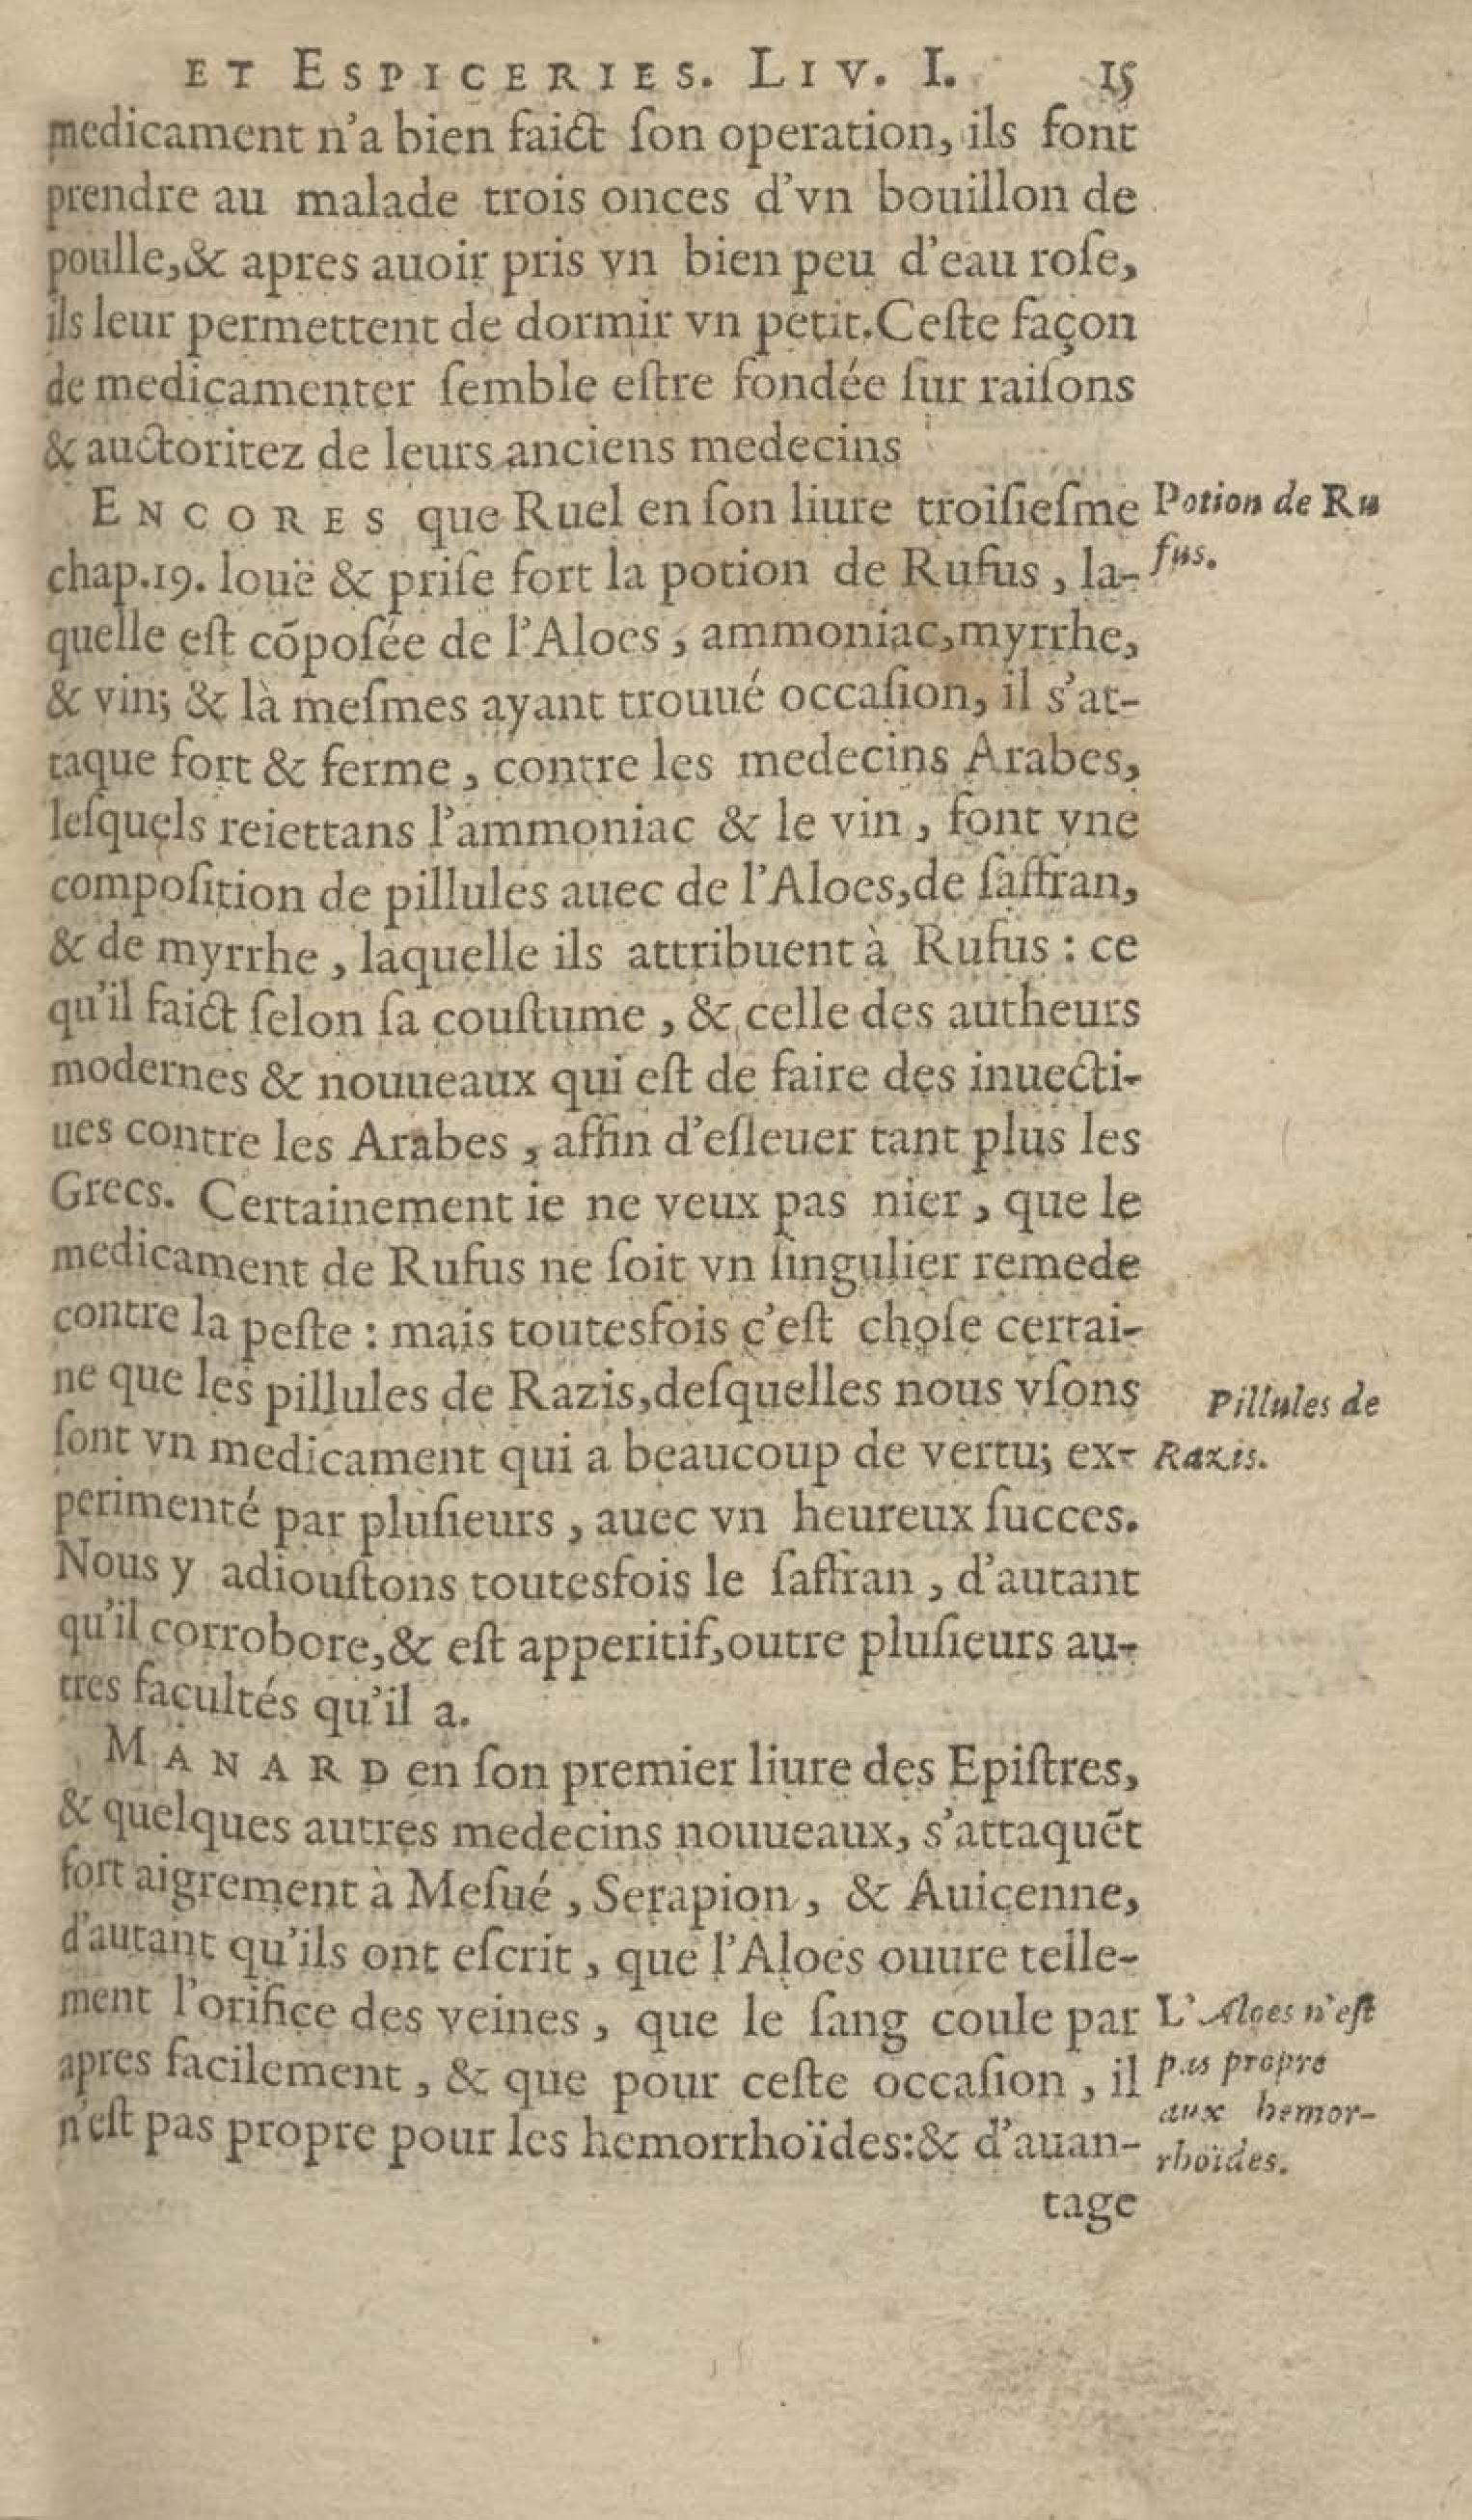 ET ESPICERIES. LIV. I. 15
medicament n'a bien faict ſon operation, ils font
prendre au malade trois onces d'vn bouillon de
poulle,& apres auoir pris vn bien peu d'eau roſe,
ils leur permettent de dormir vn petit.Ceſte façon
de medicamenter ſemble eſtre fondée ſur raiſons
& auctoritez de leurs anciens medecins
ENCORES que Ruel en ſon liure troiſieſme
Potion de Ru
chap.19. louë & priſe fort la potion de Rufus, la-
fus.
quelle eſt cõpoſée de l'Aloes, ammoniac,myrrhe,
& vin; & là meſmes ayant trouué occaſion, il s'at-
taque fort & ferme, contre les medecins Arabes,
leſquels reiettans l'ammoniac & le vin, font vne
compoſition de pillules auec de l'Aloes,de ſaffran,
& de myrrhe, laquelle ils attribuent à Rufus : ce
qu'il faict ſelon ſa couſtume, & celle des autheurs
modernes & nouueaux qui eſt de faire des inuecti-
ues contre les Arabes, affin d'eſleuer tant plus les
Grecs. Certainement ie ne veux pas nier, que le
medicament de Rufus ne ſoit vn ſingulier remede
contre la peſte : mais toutesfois c'eſt choſe certai-
ne que les pillules de Razis,deſquelles nous vſons
Pillules de
ſont vn medicament qui a beaucoup de vertu; ex-
Razis.
perimenté par pluſieurs, auec vn heureux ſucces.
Nous y adiouſtons toutesfois le ſaffran, d'autant
qu'il corrobore,& eſt apperitif,outre pluſieurs au-
tres facultés qu'il a.
MANARD en ſon premier liure des Epiſtres,
& quelques autres medecins nouueaux, s'attaquẽt
fort aigrement à Meſué, Serapion, & Auicenne,
d'autant qu'ils ont eſcrit, que l'Aloes ouure telle-
ment l'orifice des veines, que le ſang coule par
L'Aloes n'eſt
apres facilement, & que pour ceſte occaſion, il
pas propre
n'eſt pas propre pour les hemorrhoïdes:& d'auan-
aux hemor-
rhoïdes.
tage